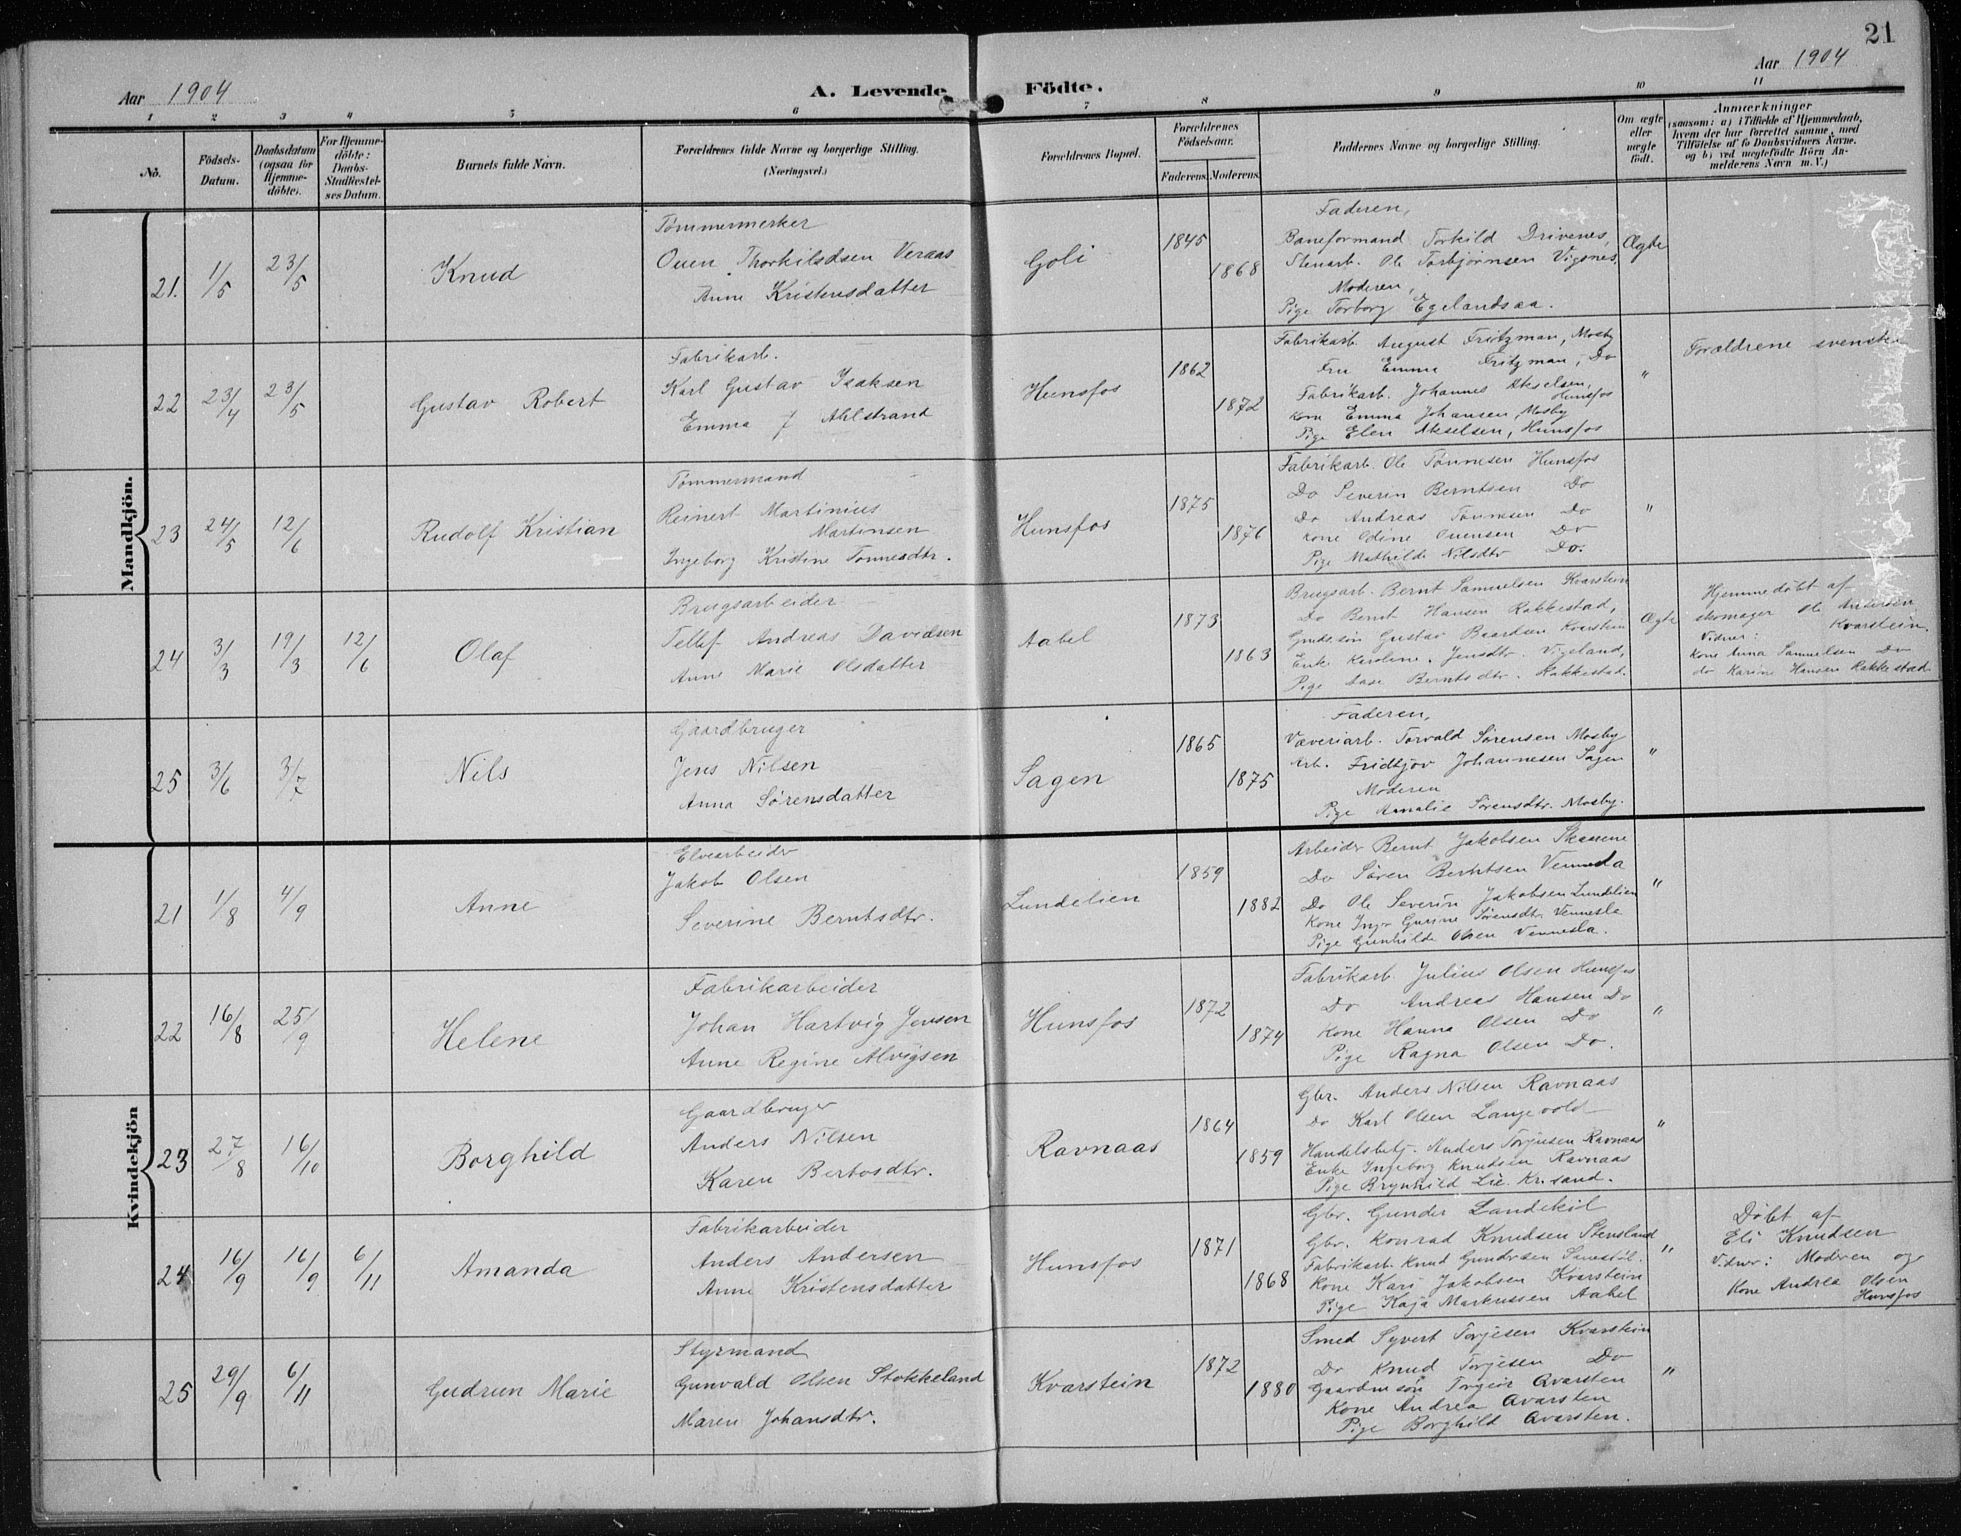 21
Aar 1904
A. Levende Födte.
Aar 1904
1 2 3 4 5 6 7 8 9 10 11
No.
Födsels-Datum.
Daabsdatum (ogsaa for Hjemmedöbte).
For Hjemmedöbte: Daabs-Stadfæstelses Datum.
Barnets fulde Navn.
Forældrenes fulde Navne og borgerlige Stilling. (Næringsvei.)
Forældrenes Bopæl.
Forældrenes Födselsaar.
Faderens. Moderens.
Faddernes Navne og borgerlige Stilling.
Om ægte eller uægte født.
Anmærkninger
(saasom: a) i Tilfælde af Hjemmedaab, hvem der har forrettet samme, med Tilföielse af to Daabsvidners Navne. og b) ved uægtefödte Börn Anmelderens Navn m. V.)
Mandkjön.
21. 1/5 23/5 Knud
Tømmermerker
Ouen Thorkildsen Veraas
Anne Kristensdatter
Goli 1845 1868
Faderen,
Baneformand Torkild Drivenes,
Stenarb. Ole Torbjørnsen Vigsnes,
Moderen,
Pige Torborg Egelandsaa.
Ægte
22 23/4 23/5 Gustav Robert
Fabrikarb.
Karl Gustav Isaksen
Emma J Ahlstrand
Hunsfos 1862 1872
Fabrikarb. August Fritzman, Mosby
Fru Emma Fritzman, Do
Fabrikarb. Johannes Akselsen, Hunsfos
Kone Emma Johansen, Mosby
Pige Elen Akselsen, Hunsfos
"
Forældrene svenske
23 24/5 12/6 Rudolf Kristian
Tømmermand
Reinert Martinius Martinsen
Ingeborg Kristine Tønnesdtr.
Hunsfos 1875 1876
Fabrikarb. Ole Tønnesen Hunsfos
Do Severin Berntsen Do
Do Andreas Tønnesen Do
Kone Odine Ouensen Do
Pige Mathilde Nilsdtr Do.
"
24 3/3 19/3 12/6 Olaf
Brugsarbeider
Tellef Andreas Davidsen
Anne Marie Olsdatter
Aabel 1873 1863
Brugsarb. Bernt Samuelsen Kvarstein
Do Bernt Hansen Rakkestad,
Grdb.søn Gustav Baardsen Kvarstein
Enke Karoline Jensdtr. Vigeland,
Pige Aase Berntsdtr. Rakkestad.
Ægte
Hjemmedøbt af
skomager Ole Andersen
Kvarstein.
Vidner:
Kone Anna Samuelsen Do
do Karine Hansen Rakkestad
25 3/6 3/7 Nils
Gaardbruger
Jens Nilsen
Anna Sørensdatter
Sagen 1865 1875
Faderen,
Væveriarb. Torvald Sørensen Mosby
Arb. Fridtjov Johannesen Sagen
Moderen
Pige Amalie Sørensdtr. Mosby.
"
Kvindekjön
21 1/8 4/9 Anne
Elvearbeider
Jakob Olsen
Severine Berntsdtr.
Lundelien 1859 1882
Arbeider Bernt Jakobsen
Do Søren Berntsen Vennesla
Do Ole Severin Jakobsen Lundelien
Kone Inger Gurine Sørensdtr. Vennesla
Pige Gunhilde Olsen Vennesla.
"
22 16/8 25/9 Helene
Fabrikarbeider
Johan Hartvig Jensen
Anne Regine Alvigsen
Hunsfos 1872 1874
Fabrikarb. Julius Olsen Hunsfos
Do Andreas Hansen Do
Kone Hanna Olsen Do
Pige Ragna Olsen Do.
"
23 27/8 16/10 Borghild
Gaardbruger
Anders Nilsen
Karen Bertosdtr.
Ravnaas 1864 1859
Gbr. Anders Nilsen Ravnaas
Do Karl Olsen Langevold
Handelsbetj. Anders Torjusen Ravnaas
Enke Ingeborg Knudsen Ravnaas
Pige Brynhild Lie Kr.sand.
"
24 16/9 16/9 6/11 Amanda
Fabrikarbeider
Anders Andersen
Anne Kristensdatter
Hunsfos 1871 1868
Gbr. Gunder Landekil
Gbr. Konrad Knudsen Stensland
Fabrikarb. Knud Gundersen
Kone Kari Jakobsen Kvarstein
Pige Kaja Markussen Aabel
"
Døbt af
Eli Knudsen
Vidner: Moderen og
Kone Andrea Olsen
Hunsfos
25 29/9 6/11 Gudrun Marie
Styrmand
Gunvald Olsen Stokkeland
Maren Johansdtr.
Kvarstein 1872 1880
Smed Syvert Torjesen Kvarstein
Do Knud Torjesen Do
Gaardm.søn Torgeir Qvarsten
Kone Andrea Qvarsten
Pige Borghild Qvarsten.
"